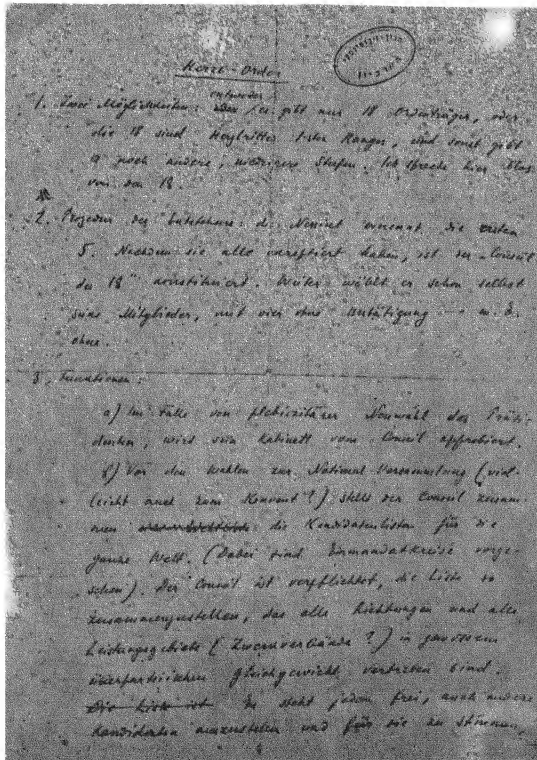 Herzl-Orden
entweder
1. Zwei Möglichkeiten: /es gibt nur 18 Ordensträger, oder
die 18 sind Herzlritter 1-ster Ranges, und sonst gibt
noch andere, niedrigere Stufen. Ich spreche hier blos
von den 18.
2. Prozedur des Entstehens: die Neunent ernennt die ersten
5. Nachdem sie alle akzeptiert haben, ist der "Conseil
des 18" konstituiert. Weiter wählt er schon selbst
seine Mitglieder, mit oder ohne Bestätigung – m. E.
ohne.
3. Funktionen:
a) Im Falle von plebiszitärer Neuwahl des Präsi-
denten, wird sein Kabinett vom Conseil approbiert.
b) Vor den Wahlen zur National-Versammlung (viel-
leicht auch zum Konvent?) stellt der Conseil zusam-
men die Kandidatenlisten für die
ganze Welt. (Dabei sind Einmandatkreise vorge-
sehen). Der Conseil ist verpflichtet, die Liste so
zusammenzustellen, das alle Richtungen und alle
Leistungsgebiete (Zweckverbände?) in gewissem
überparteiischen Gleichgewicht vertreten sind.
Die Liste ist Es steht jedem frei, auch andere
Kandidaten auszustellen und für sie zu stimmen,